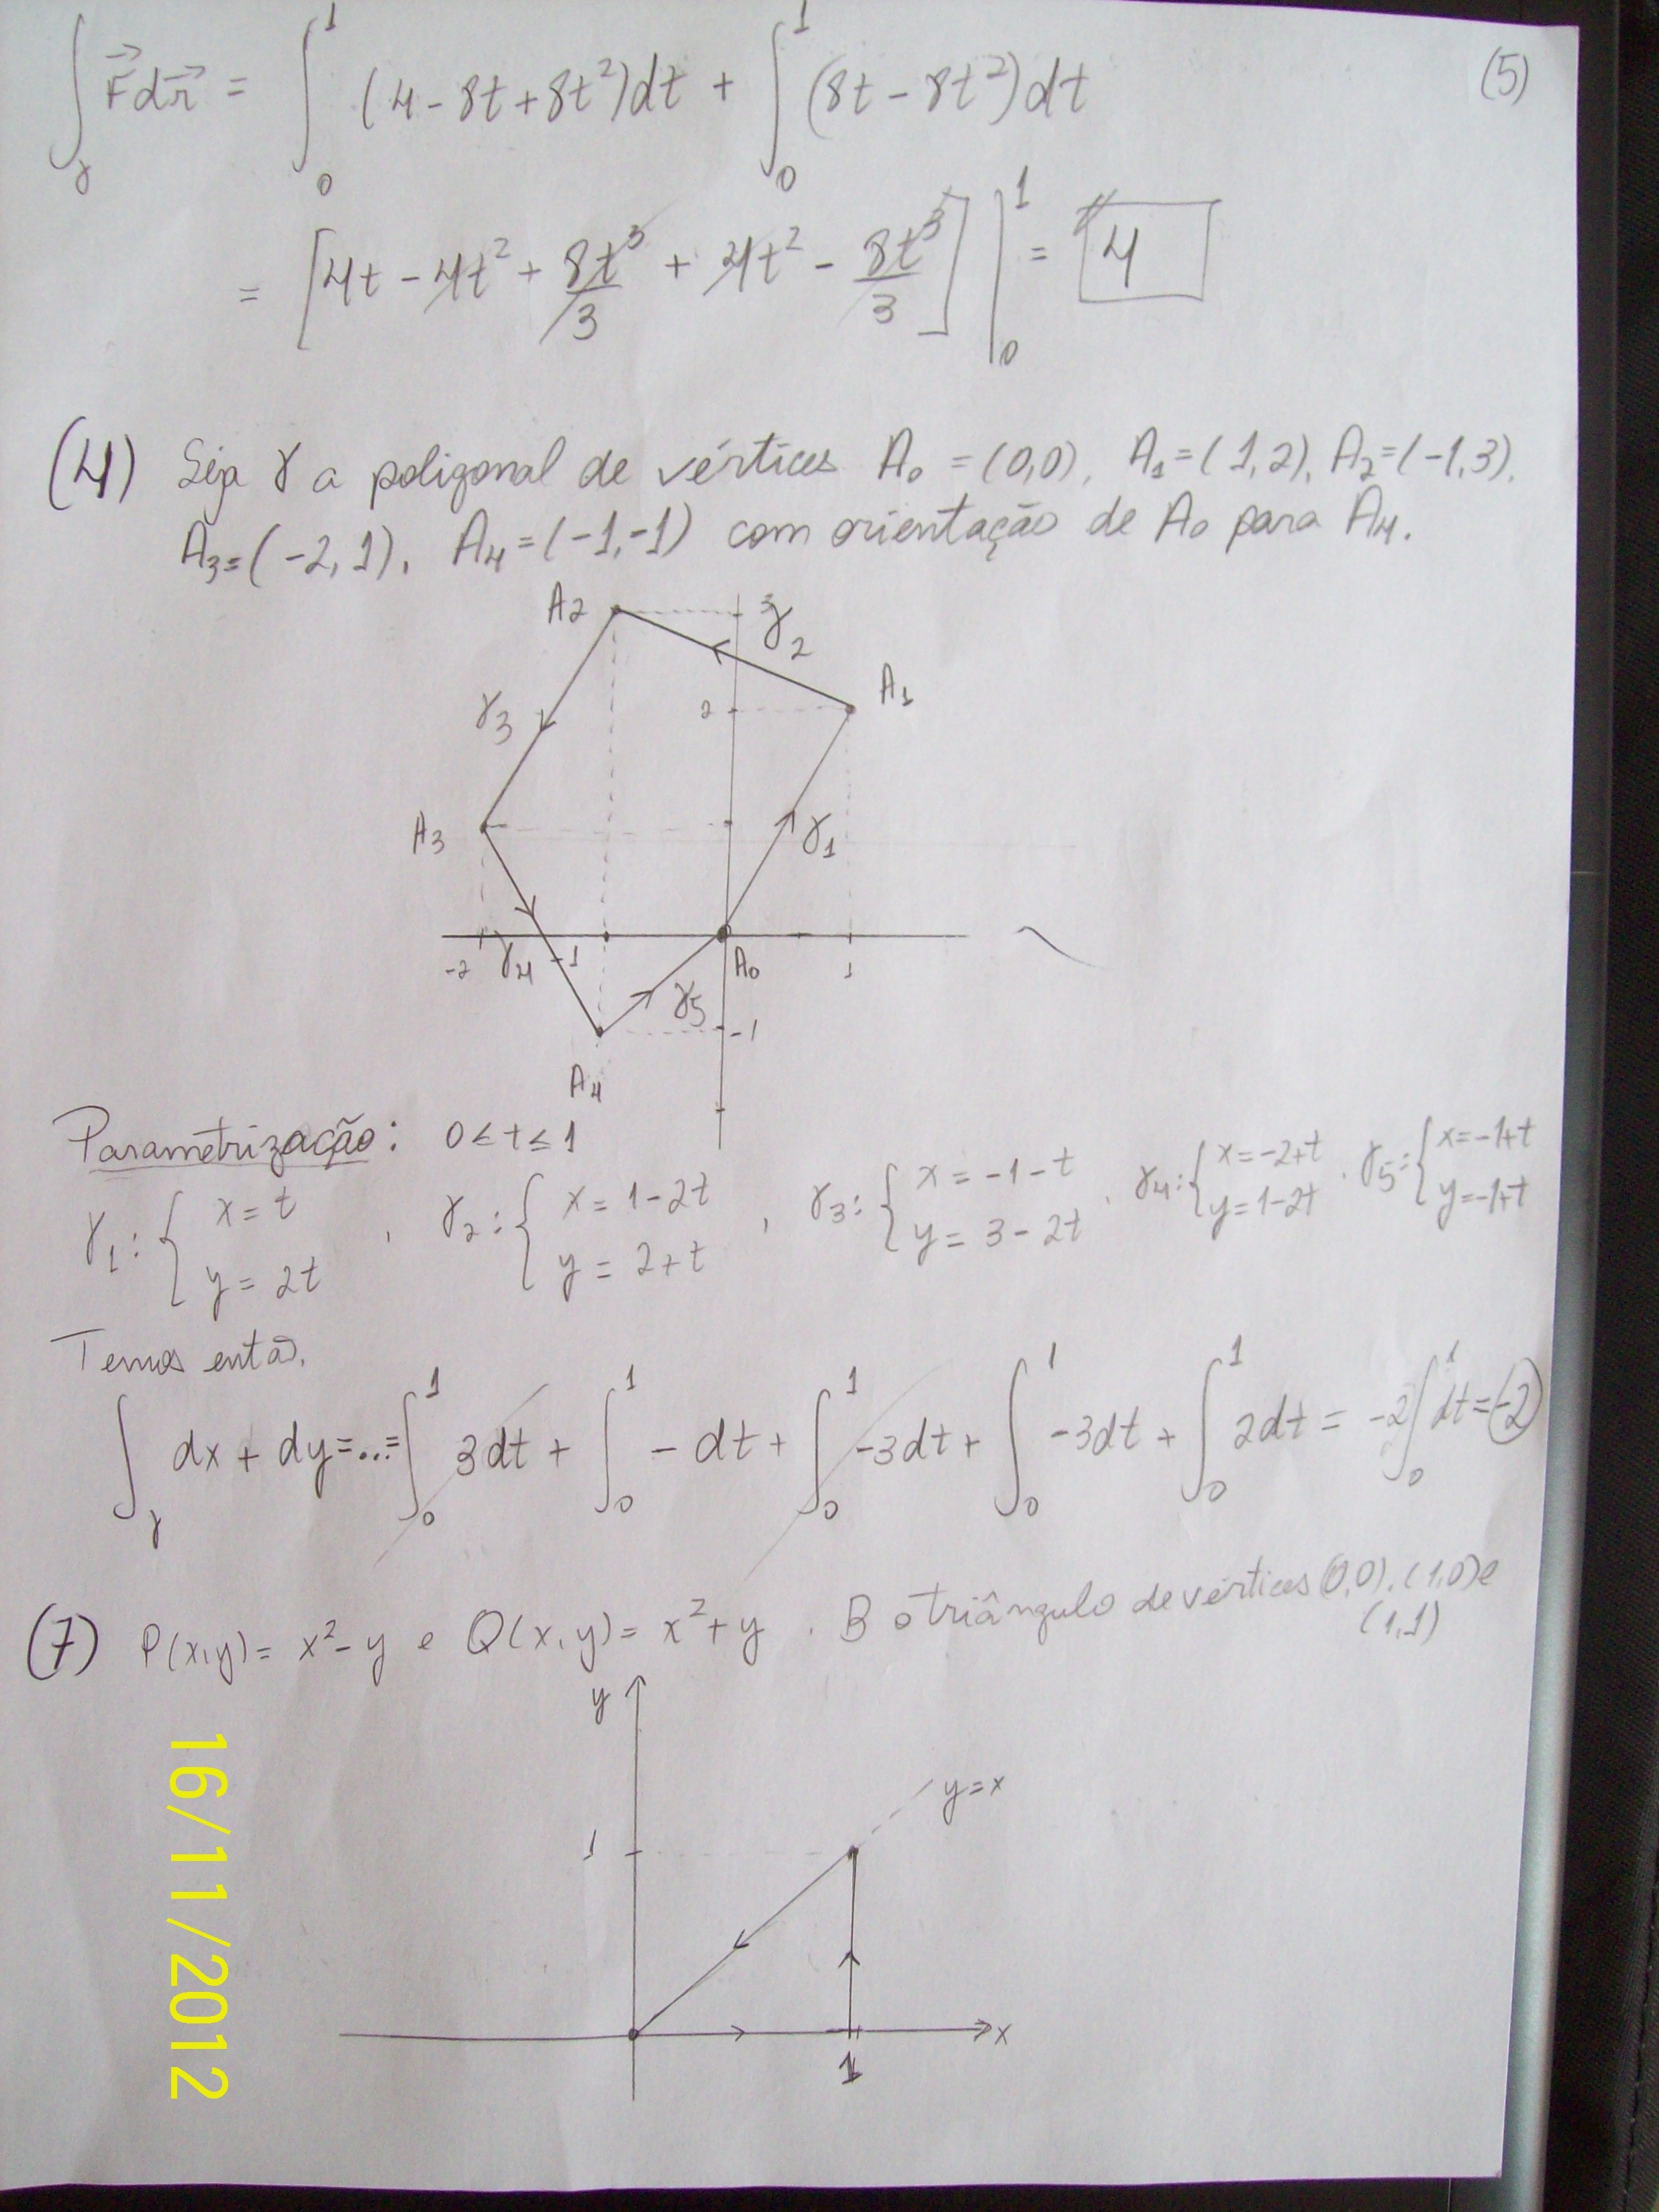 ∫γ F⃗ dr⃗ = ∫₀¹ (4 - 8t + 8t²)dt + ∫₀¹ (8t - 8t²)dt
(5)
= [4t - 4t² + 8t³/3 + 4t² - 8t³/3] |₀¹ = 4
(4) Seja γ a poligonal de vértices A₀ = (0,0), A₁ = (1,2), A₂ = (-1,3),
A₃ = (-2,1), A₄ = (-1,-1) com orientação de A₀ para A₄.
A2 3 γ₂
A₁
γ₃ 2
A3 γ₁
-2 γ₄ -1 A₀ 1
γ₅ -1
A₄
Parametrização: 0 ≤ t ≤ 1
γ₁: { x = t y = 2t , γ₂: { x = 1-2t y = 2+t , γ₃: { x = -1-t y = 3-2t , γ₄: { x = -2+t y = 1-2t , γ₅: { x = -1+t y = -1+t
Temos então,
∫γ dx + dy = ... = ∫₀¹ 3dt + ∫₀¹ -dt + ∫₀¹ -3dt + ∫₀¹ -3dt + ∫₀¹ 2dt = -2∫₀¹ dt = -2
(7) P(x,y) = x² - y e Q(x,y) = x² + y . B o triângulo de vértices (0,0), (1,0) e
(1,1)
y
y = x
1
x
1
16/11/2012